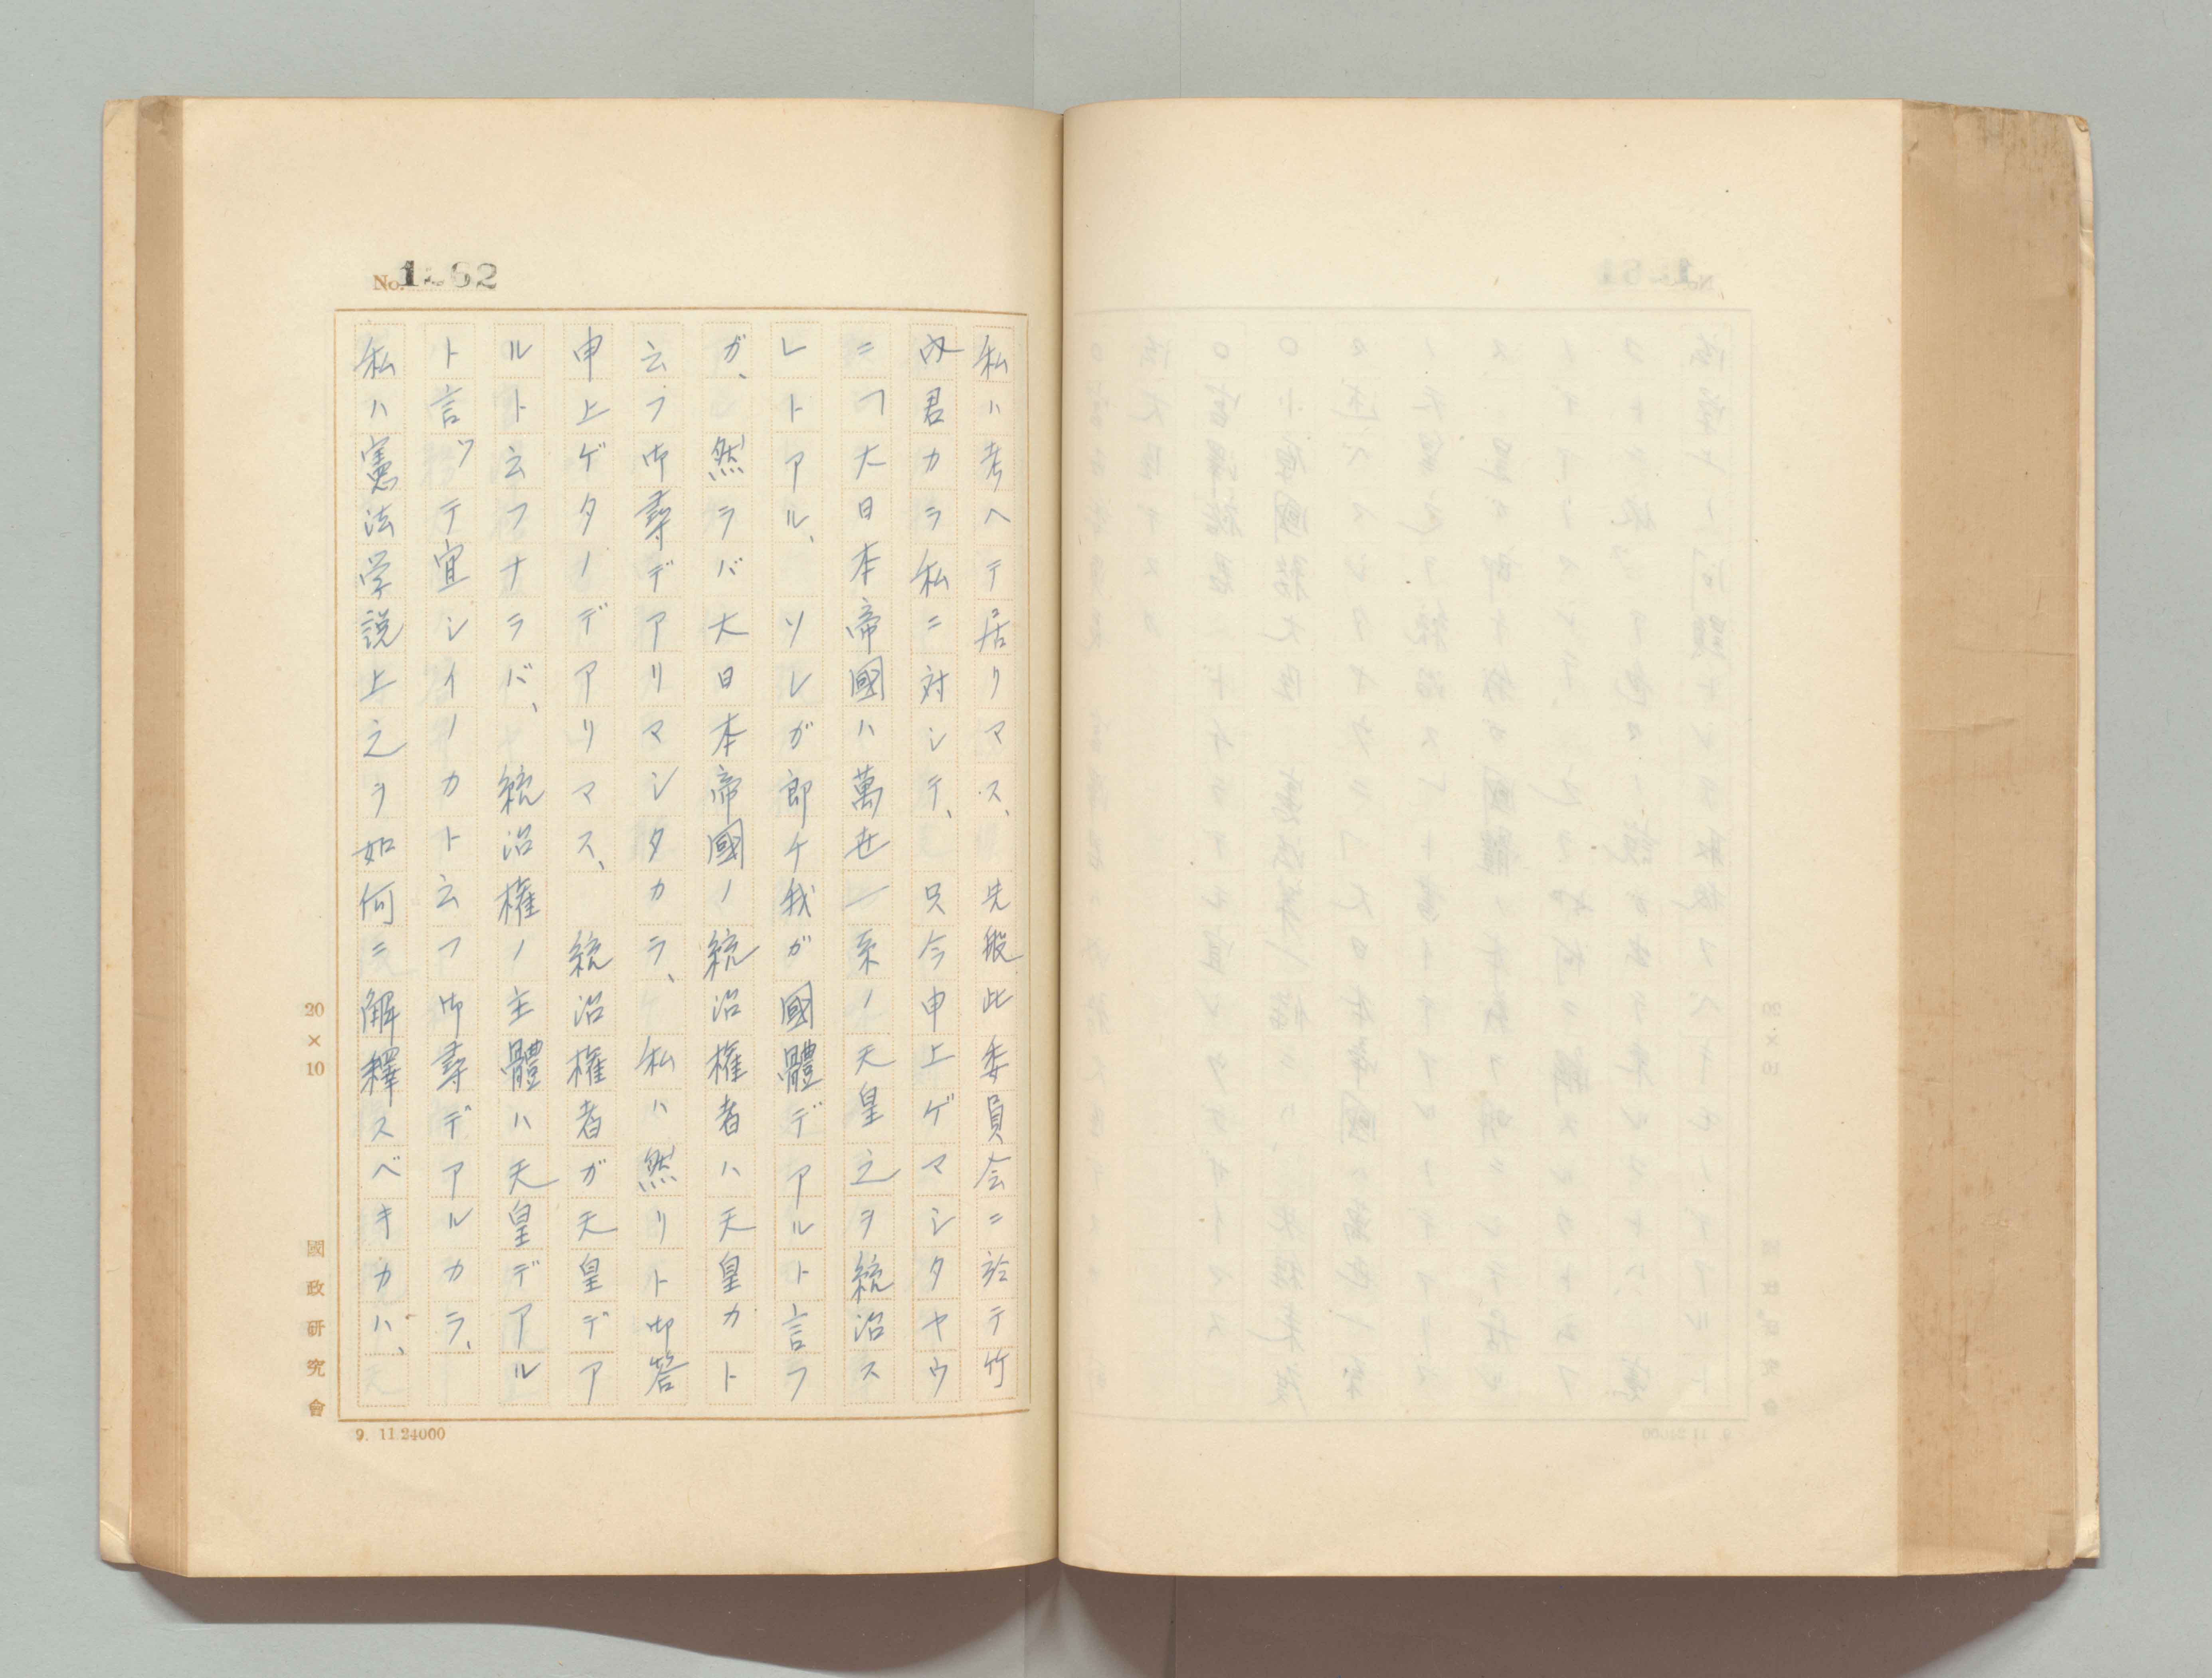 No. 1282
私ハ考ヘテ居リマス、先般此委員会ニ於テ竹
内君カラ私ニ対シテ、只今申上ゲマシタヤウ
ニ「大日本帝國ハ萬世一系ノ天皇之ヲ統治ス
レトアル、ソレガ郎チ我ガ國體デアルト言フ
ガ、然ラバ大日本帝國ノ統治権者ハ天皇カト
云フ御尋デアリマシタカラ、私ハ然リト御答
申上ゲタノデアリマス、統治権者ガ天皇デア
ルト云フナラバ、統治権ノ主體ハ天皇デアル
ト言ツテ宜シイノカト云フ御尋デアルカラ、
私ハ憲法学説上之ヲ如何ニ解釋スベキカハ、
20×10
國政研究會
9. 11 24000